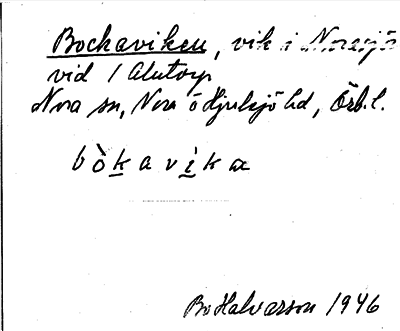 Bockaviken, vik i Norasjö
vid / Alntorp
Nora sn, Nora o Hjulsjö hd, Örb. l.
bòkavika
Bo Halvarson 1946